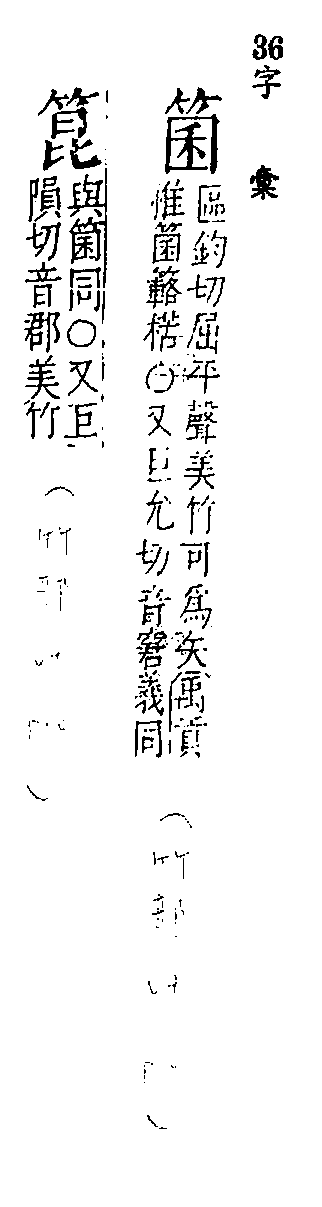 36字彙
箘
區鈞切屈平聲美竹可爲矢禹貢
惟箘簵楛○又巨允切音窘義同
（竹部
）
箟
與箘同○又巨
隕切音郡美竹
（竹部
）